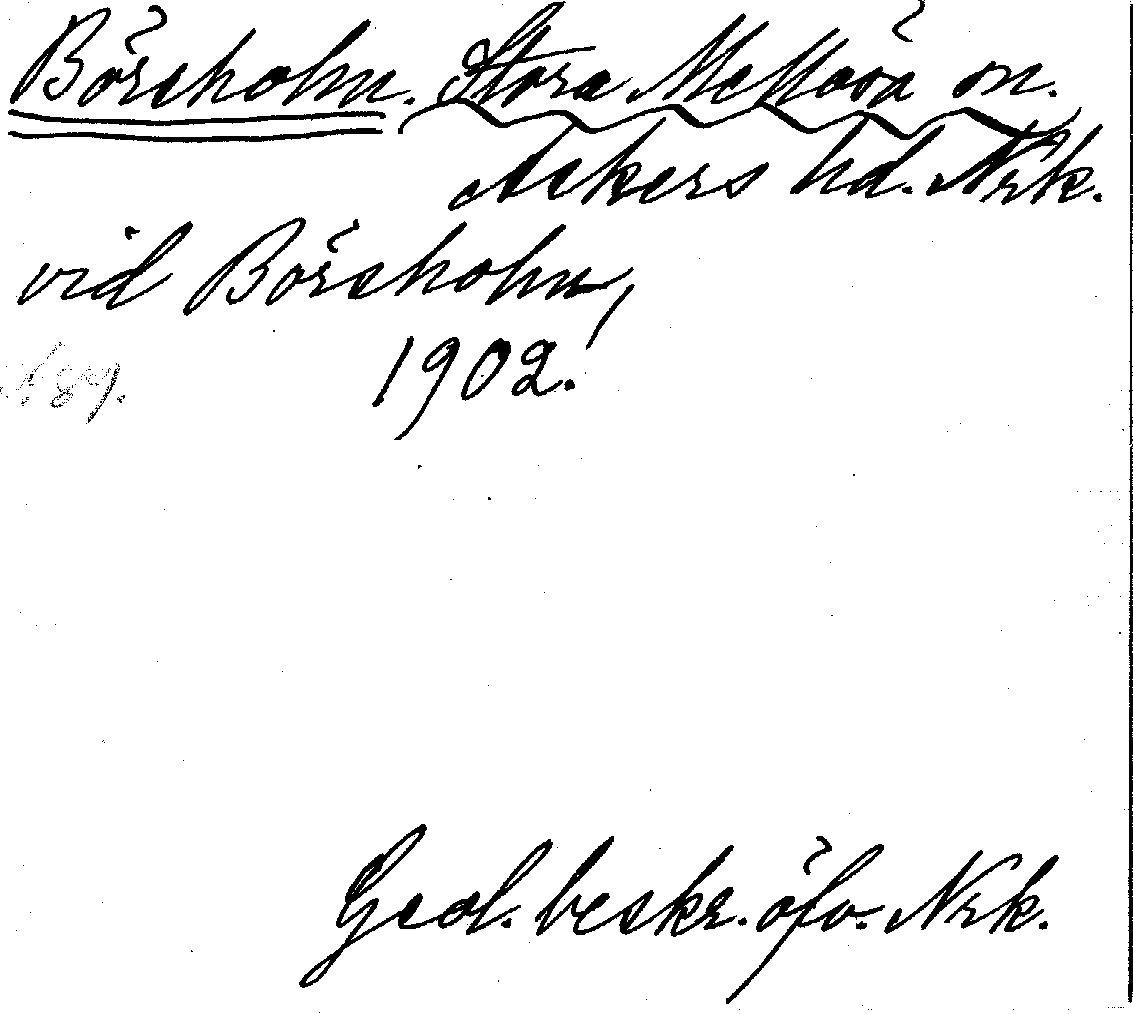 Börsholm. Stora Mellösa sn.
Askers hd. Nrk.
vid Börsholm,
1902.
Geol. beskr. öfv. Nrk.